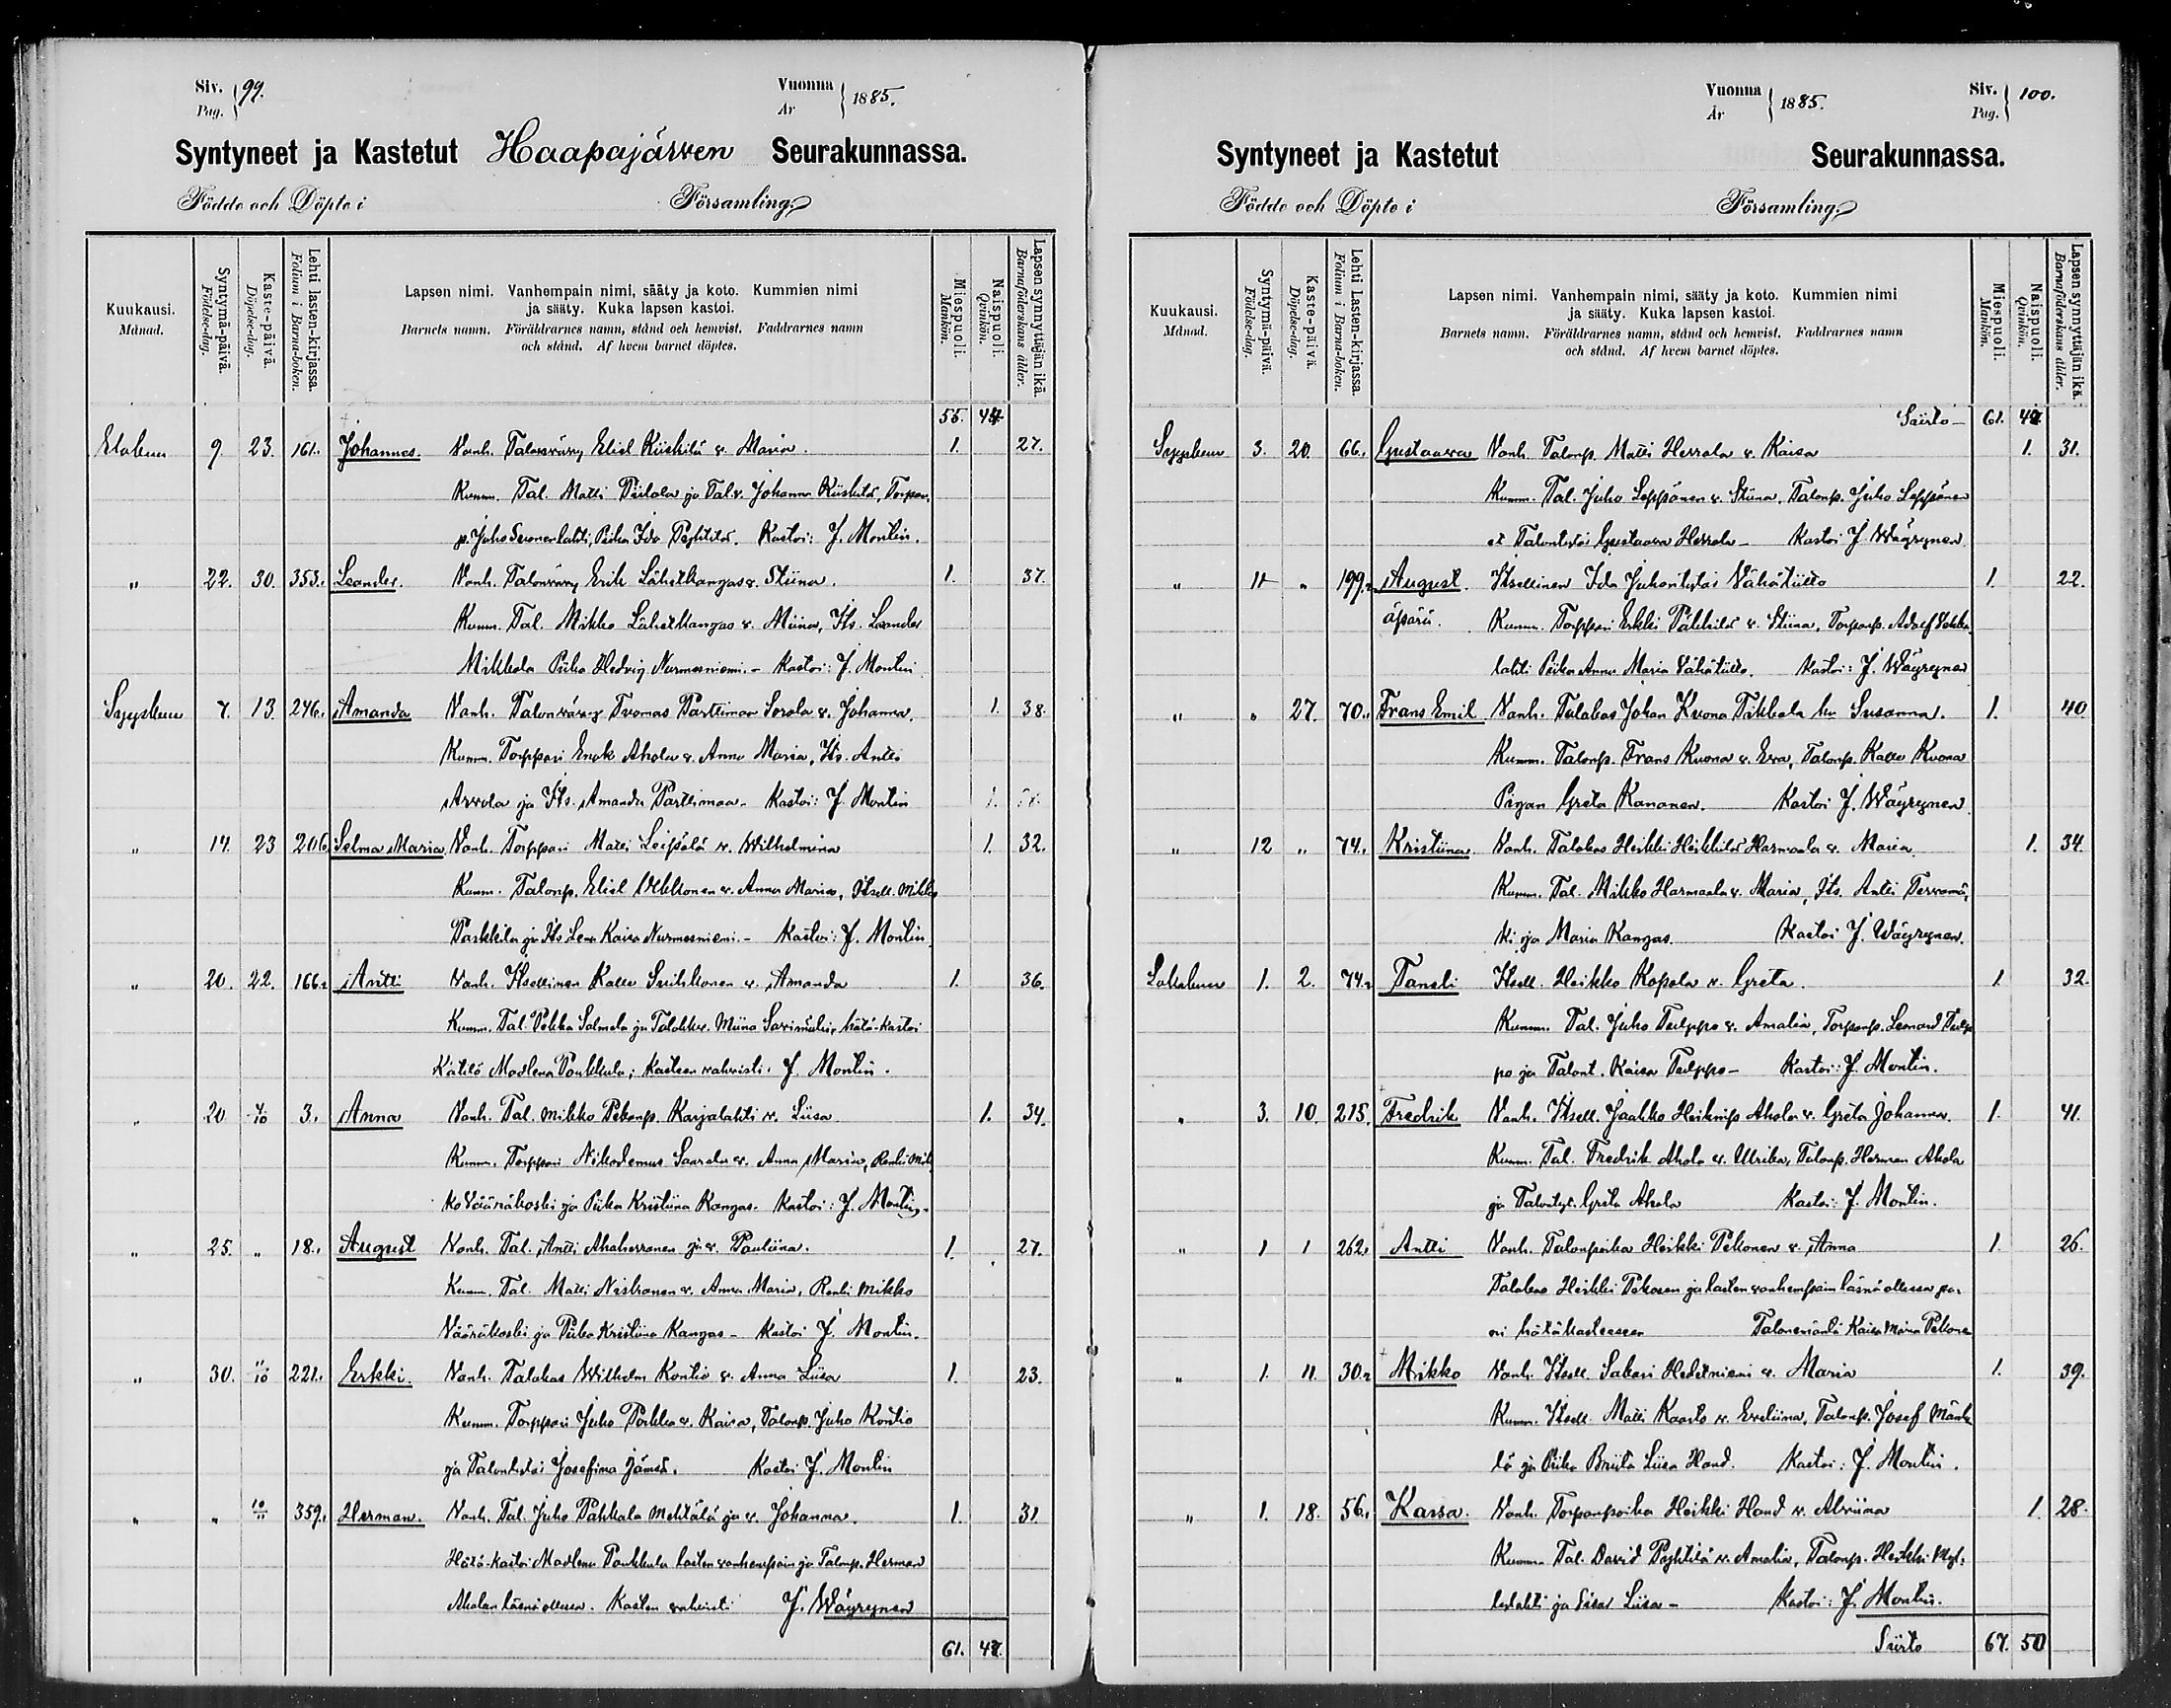 Siv. Pag. 99.
Vuonna År 1885.
Syntyneet ja Kastetut Haapajärven Seurakunnassa.
Födde och Döpte i Församling
Kuukausi. Månad.
Syntymä-päivä. Födelse-dag.
Kaste-päivä. Döpelse-dag.
Lehti lasten-kirjassa. Folium i Barna-boken.
Lapsen nimi. Vanhempain nimi, sääty ja koto. Kummien nimi
ja sääty. Kuka lapsen kastoi.
Barnets namn. Föräldrarnes namn, stånd och hemvist. Faddrarnes namn
och stånd. Af hvem barnet döptes.
Miespuoli. Mankön.
Naispuoli. Qvinkön.
Lapsen synnyttäjän ikä. Barnaföderskans ålder.
55. 44
Elokuu 9. 23. 161. Johannes. Vanh. Talonvävy Eliel Kiiskilä v. Maria. 1. 27.
Kumm. Tal. Matti Piilola ja Tal.v. Johanna Kiiskilä, Torpan
p. Juho Suonenlahti, Piika Ida Pyhtilä. Kastoi: J. Montin.
„ 22. 30. 353. Leander. Vanh. Talonvävy Erik Lähetkangas v. Stiina. 1. 37.
Kumm. Tal. Mikko Lähetkangas v. Miina, Its. Leander
Mikkola Piika Hedvig Nurmesniemi. - Kastoi: J. Montin
Syyskuu 7. 13. 246. Amanda Vanh. Talonvävy Tuomas Parttimaa Sorola v. Johanna. 1. 38.
Kumm. Torppari Enok Ahola v. Anna Maria, Its. Antti
Arvola ja Its. Amanda Parttimaa - Kastoi: J. Montin 1.
„ 14. 23 206 Selma Maria Vanh. Torppari Matti Leipälä v. Wilhelmina 1. 32.
Kumm. Talonp. Eliel Ukkonen v. Anna Maria, Itsell. Mikko
Parkkila ja Its Lena Kaisa Nurmesniemi. - Kastoi: J. Montin
„ 20. 22. 166. Antti Vanh. Itsellinen Kalle Suihkonen v. Amanda 1. 36.
Kumm. Tal. Pekka Salmela ja Miina hätä-kastoi
Kätilö Madlena Paukkula; Kasteen vahvisti. J. Montin.
„ 20 4/10 3. Anna Vanh. Tal. Mikko Pekanp. Karjalahti v. Liisa 1. 34.
Kumm. Torppari Nikodemus Saarela v. Anna Maria, Renki Mik
ko Vääräkoski ja Piika Kristiina Kangas. Kastoi: J. Montin.
„ 25. „ 18. August Vanh. Tal. Antti Ahaherranen ja v. Pauliina. 1. 27.
Kumm. Tal. Matti Niskanen v. Anna Maria, Renki Mikko
Vääräkoski ja Piika Kristiina Kangas - Kastoi J. Montin.
„ 30. 11/10 221. Erkki. Vanh. Talokas Wilhelm Kontio v. Anna Liisa 1. 23.
Kumm. Torppari Juho Pokka v. Kaisa, Talonp. Juho Kontio
ja Talontytär Josefina Jämsä. Kastoi J. Montin
„ „ 10/11 359. Herman. Vanh. Tal. Juho Pakkala Mehtälä ja v. Johanna. 1. 31.
Hätä-kastoi Madlena Paukkula lasten vanhempain ja Talonp. Herman
Aholan läsnä ollessa. Kasten vahvisti J. Wäyrynen
61. 47.
Siv. Pag. 100.
Vuonna År 1885.
Syntyneet ja Kastetut Seurakunnassa.
Födde och Döpte i Församling.
Kuukausi. Månad.
Syntymä-päivä. Födelse-dag.
Kaste-päivä. Döpelse-dag.
Lehti Lasten-kirjassa. Folium i Barna-boken.
Lapsen nimi. Vanhempain nimi, sääty ja koto. Kummien nimi
ja sääty. Kuka lapsen kastoi.
Barnets namn. Föräldrarnes namn, stånd och hemvist. Faddrarnes namn
och stånd. Af hvem barnet döptes.
Miespuoli. Mankön.
Naispuoli. Qvinkön.
Lapsen synnyttäjän ikä. Barnaföderskans ålder.
Siirto - 61. 47
Syyskuu 3. 20. 66. Gustaava Vanh. Talonp. Matti Herrala v. Kaisa 1. 31.
Kumm. Tal. Juho Leppänen v. Stiina, Talonp. Juho Leppänen
Talontytär Gustaava Herrala - Kastoi J. Wäyrynen
„ 11 „ 199. August. Itsellinen Ida Juhontytär Vähätiitto 1. 22.
äpärä. Kumm. Torppari Erkki Pakkila v. Stiina, Torpanp. Adolf
lahti Piika Anna Maria Vähätiitto. Kastoi: J. Wäyrynen
„ „ 27. 70. Frans Emil Vanh. Talokas Johan Kuona Pikkola Susanna. 1. 40
Kumm. Talonp. Frans Kuona v. Eva, Talonp. Kalle Kuona
Piijan Greta Kananen. Kastoi J. Wäyrynen
„ 12 „ 74. Kristiina. Vanh. Talokas Heikki Heikkilä Harmaala v. Maria. 1. 34.
Kumm. Tal. Mikko Harmaala v. Maria, Its. Antti Tervamä,
ki ja Maria Kangas. Kastoi J. Wäyrynen.
Lokakuu 1. 2. 74. Taneli Itsell. Heikko Kopola v. Greta. 1 32.
Kumm. Tal. Juho Tulppo v. Amalia, Torpanp. Leonard Tulp
po ja Talont. Kaisa Tulppo - Kastoi: J. Montin.
„ 3. 10. 215. Fredrik Vanh. Itsell. Jaakko Heikinp Ahola v. Greta Johanna. 1. 41.
Kumm. Tal. Fredrik Ahola v. Ulrika, Talonp. Herman Ahola
ja Talontyt. Greta Ahola Kastoi: J. Montin.
„ 1 1 262. Antti Vanh. Talonpoika Heikki Pekonen v. Anna 1. 26.
Talokas Heikki Pekosen ja lasten vanhempain läsnä ollessa pa-
ni hätäkasteeseen Talonemäntä Kaisa Maria Pekonen
„ 1. 11. 30. Mikko Vanh. Itsell. Sakari Hedetniemi v. Maria 1. 39.
Kumm. Itsell. Matti Kaarto v. Eveliina, Talonp. Josef Mänti
lä ja Piika Briita Liisa Hand. Kastoi: J. Montin.
„ 1. 18. 56. Kaisa. Vanh. Torpanpoika Heikki Hand v. Alviina 1. 28.
Kumm. Tal. David Pyhtilä v. Amalia, Talonp. Heikki Myl-
lylahti ja Sisar Liisa - Kastoi: J. Montin.
Siirto 67. 50